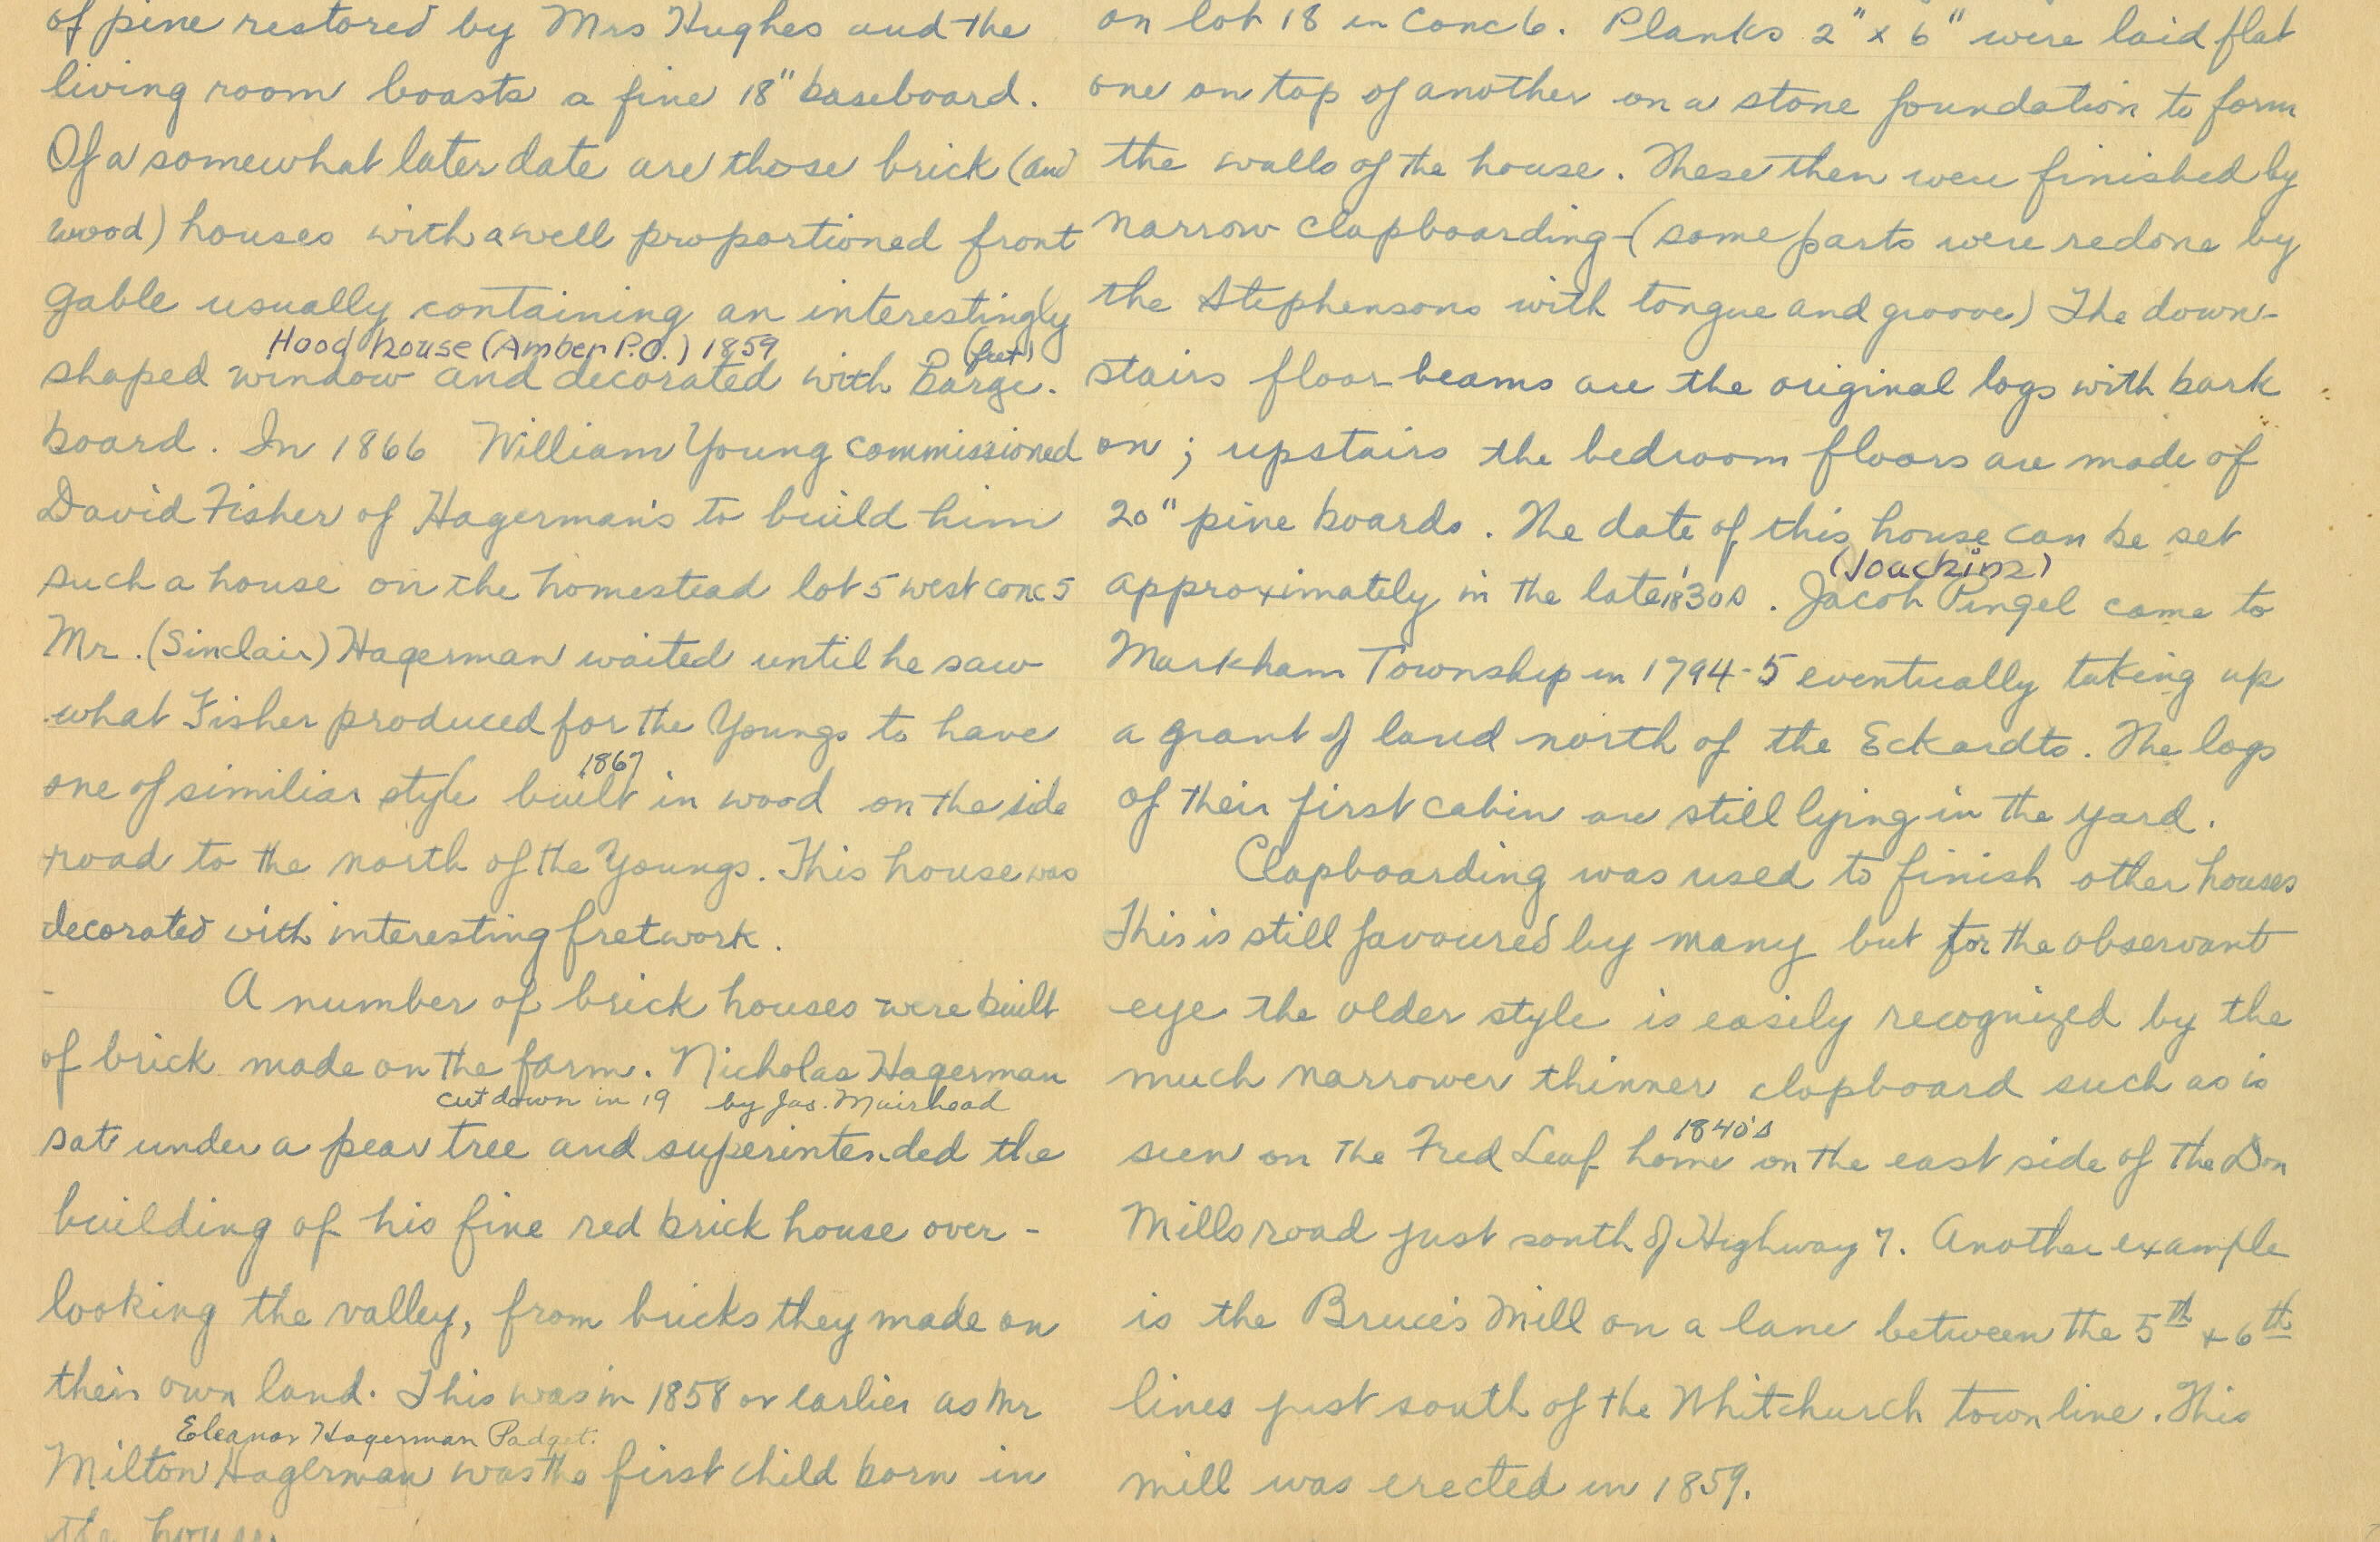 of pine restored by Mrs Hughes and the
living room boasts a fine 18" baseboard.
Of a somewhat later date are those brick (and
wood) houses with a well proportioned front
gable usually containing an interestingly
Hood house (Amber P.O.) 1859
shaped window and decorated with barge-
board. In 1866 William Young commissioned
David Fisher of Hagerman's to build him
such a house on the homestead lot 5 west conc 5
Mr. (Sinclair) Hagerman waited until he saw
what Fisher produced for the Youngs to have
1867
one of similiar style built in wood on the side
road to the north of the Youngs. This house was
decorated with interesting fretwork.
A number of brick houses were built
of brick made on the farm. Nicholas Hagerman
cut down in 19 by Jas. Muirhead
sat under a pear tree and superintended the
building of his fine red brick house over-
looking the valley, from bricks they made on
their own land. This was in 1858 or earlier as Mr
Eleanor Hagerman Padget.
Milton Hagerman was the first child born in
the house.
on lot 18 in Conc 6. Planks 2" x 6" were laid flat
one on top of another on a stone foundation to form
the walls of the house. These then were finished by
narrow clapboarding (some parts were redone by
the Stephensons with tongue and groove) The down-
stairs floor beams are the original logs with bark
on; upstairs the bedroom floors are made of
20" pine boards. The date of this house can be set
approximately in the late 1830s. Jacob Pingel came to
Markham Township in 1794-5 eventually taking up
a grant of land north of the Eckardts. The logs
of their first cabin are still lying in the yard.
Clapboarding was used to finish other houses
This is still favoured by many but for the observant
eye the older style is easily recognized by the
much narrower thinner clapboard such as is
1840's
seen on the Fred Leaf home on the east side of the Don
Mills road just south of Highway 7. Another example
is the Bruce's Mill on a lane between the 5th + 6th
lines just south of the Whitchurch town line. This
mill was erected in 1859.